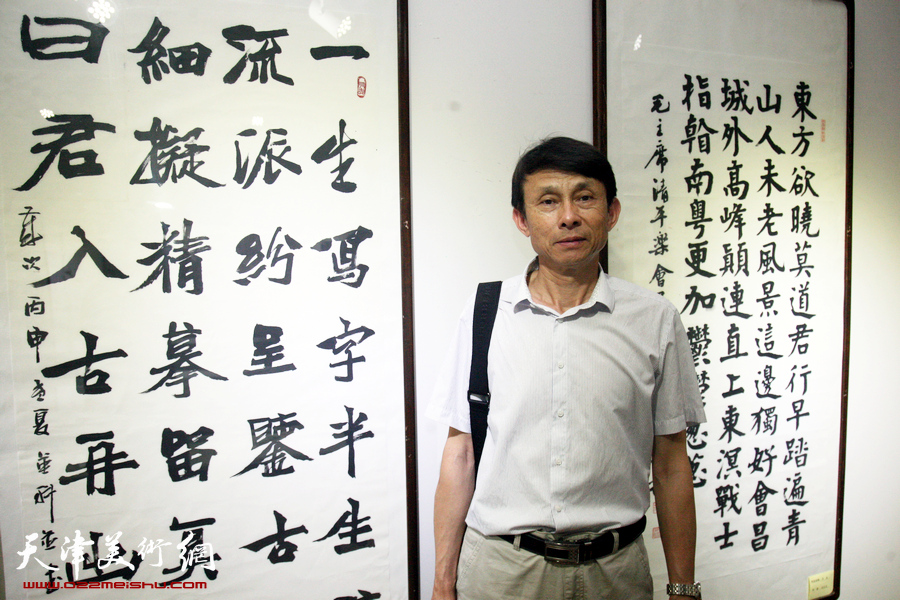 東方欲曉莫道君行早踏遍青
山人未老風景這邊獨好會昌
城外高峰顛連直上東溟戰士
指看南粵更加鬱
毛主席清平樂會
一生寫字半生
流派紛呈鑒古
細擬精摹留
曰君入古再
歲次丙申孟夏
天津美術網
www.022meishu.com